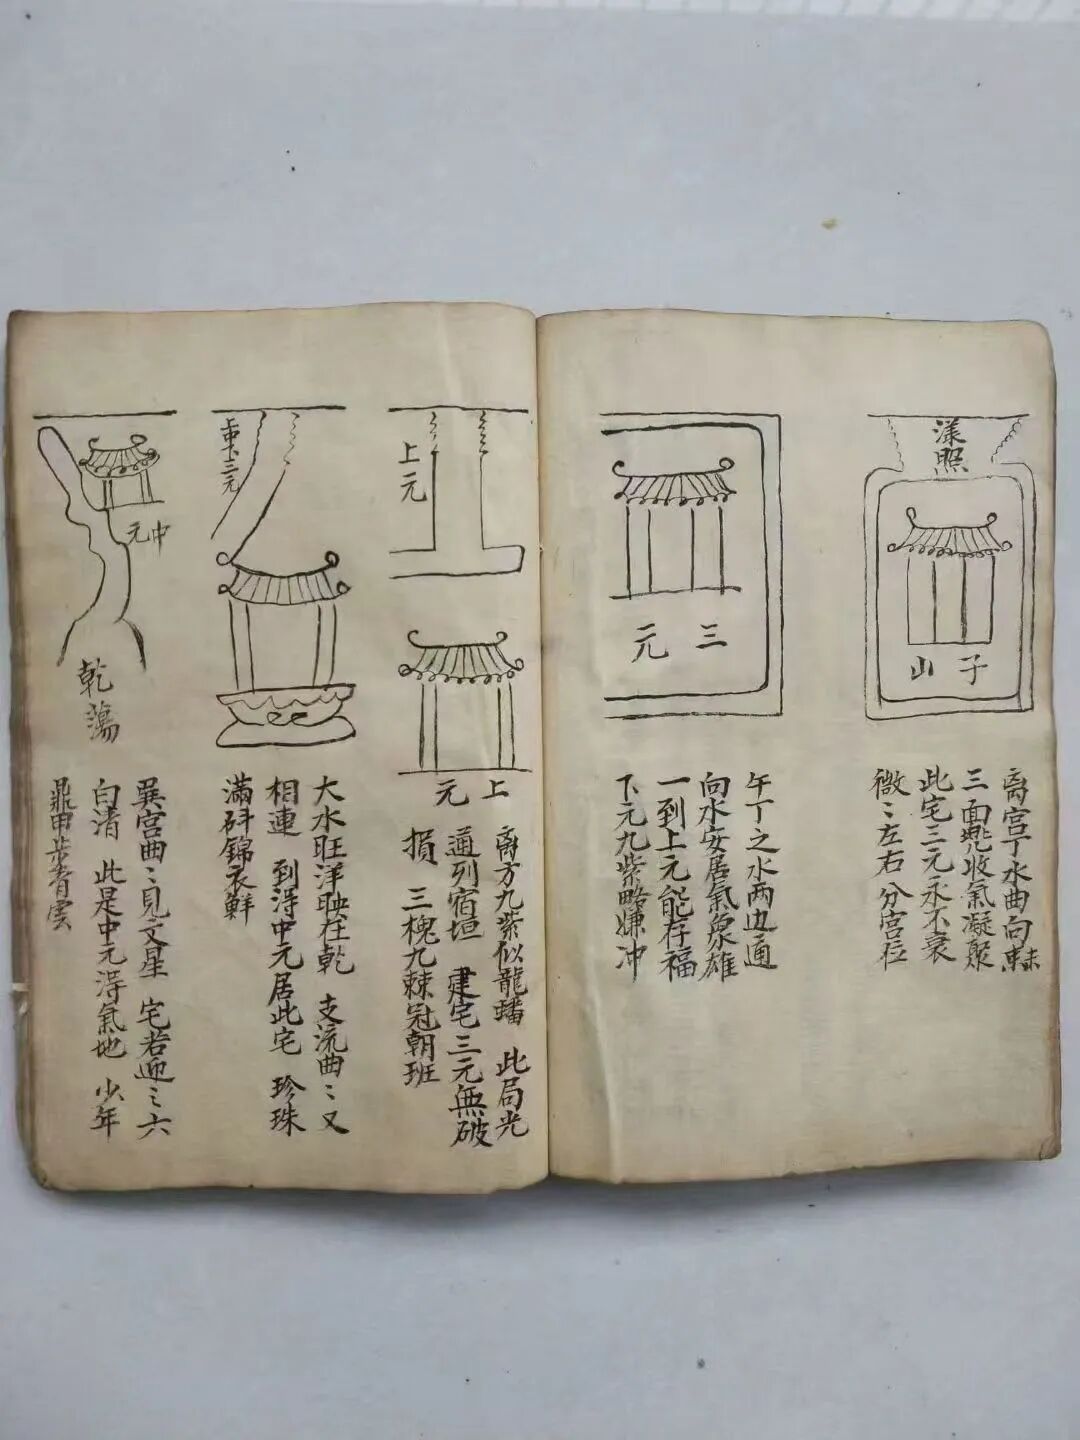 漾照
子山
离宫丁水曲向𣍰
三面兜收氣凝聚
此宅三元永不衰
微〻左右分宫位
三元
午丁之水两边通
向水安居氣象雄
一到上元能存福
下元九紫略嫌冲
上元
上元
离方九紫似龍蟠 此局光
通列宿垣 建宅三元無破
損 三槐九棘冠朝班
上中下三元
大水旺洋映在乾 支流曲〻又
相連 到得中元居此宅 珍珠
滿斗錦衣鮮
中元
乾蕩
巽宫曲〻見文星 宅若迎〻六
白清 此是中元得氣地 少年
鼎甲步青雲